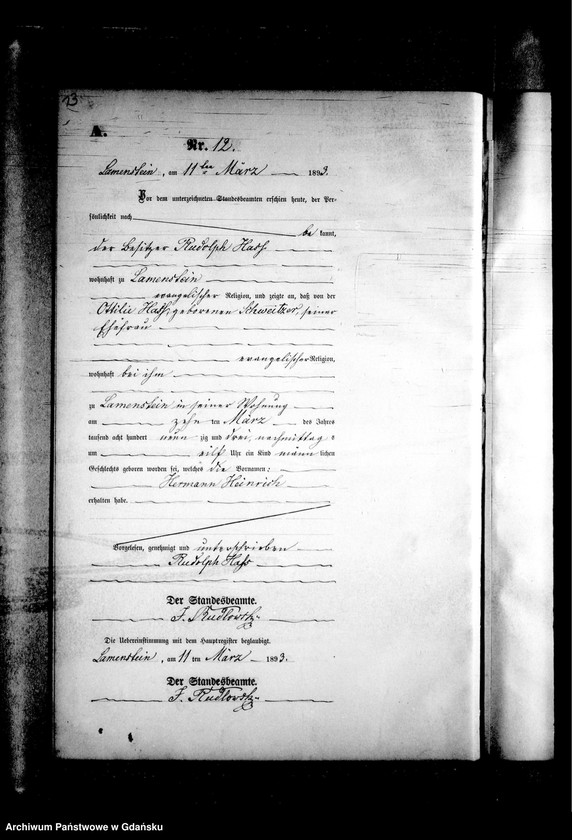 13
A.
Nr. 12.
Lamenstein, am 11ten März 1893.
Vor dem unterzeichneten Standesbeamten erschien heute, der Per-
sönlichkeit nach
be kannt,
der Besitzer Rudolph Hass
wohnhaft zu Lamenstein
evangelischer Religion, und zeigte an, daß von der
Ottilie Hass, geborenen Schweitzer, seiner
Ehefrau
evangelischer Religion,
wohnhaft bei ihm
zu Lamenstein in seiner Wohnung
am zehn ten März des Jahres
tausend acht hundert neun zig und drei, nachmittags
um eilf Uhr ein Kind männ lichen
Geschlechts geboren worden sei, welches die Vornamen:
Hermann Heinrich
erhalten habe.
Vorgelesen, genehmigt und unterschrieben
Rudolph Hass
Der Standesbeamte.
Die Uebereinstimmung mit dem Hauptregister beglaubigt.
Lamenstein, am 11 ten März 1893.
Der Standesbeamte.
Archiwum Państwowe w Gdańsku